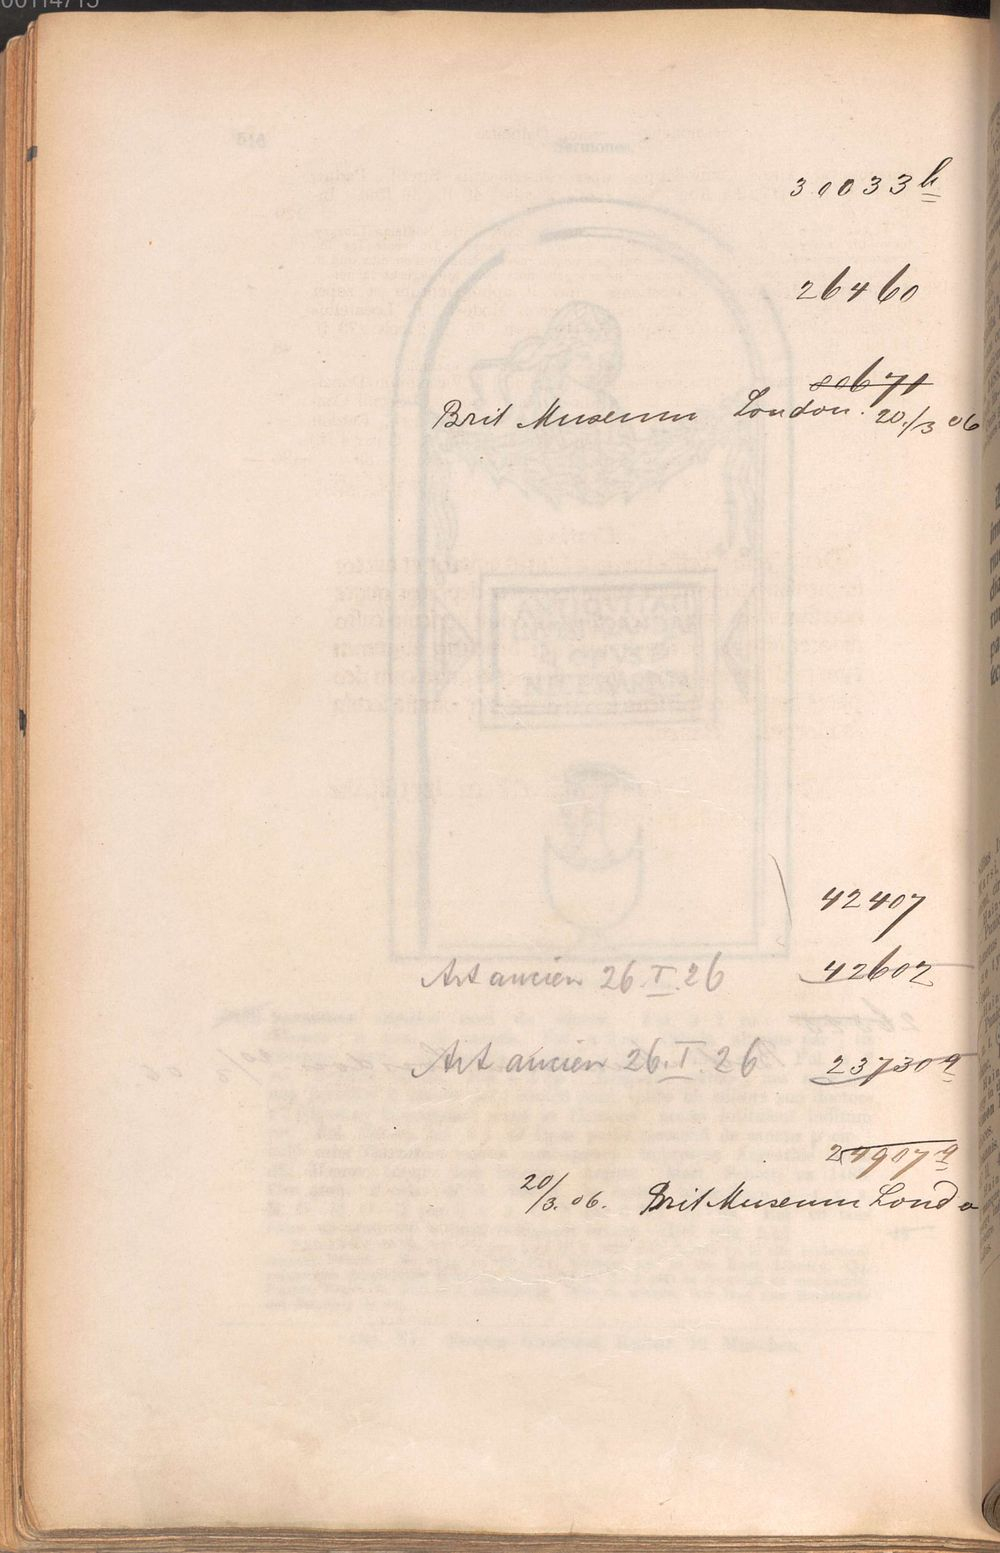 30033 b
26460
Brit Museum London. 20./3 06
42407
Art ancien 26.I.26 42602
Art ancien 26.I.26 23730 a
29907 a
20/3. 06. Brit Museum Londo